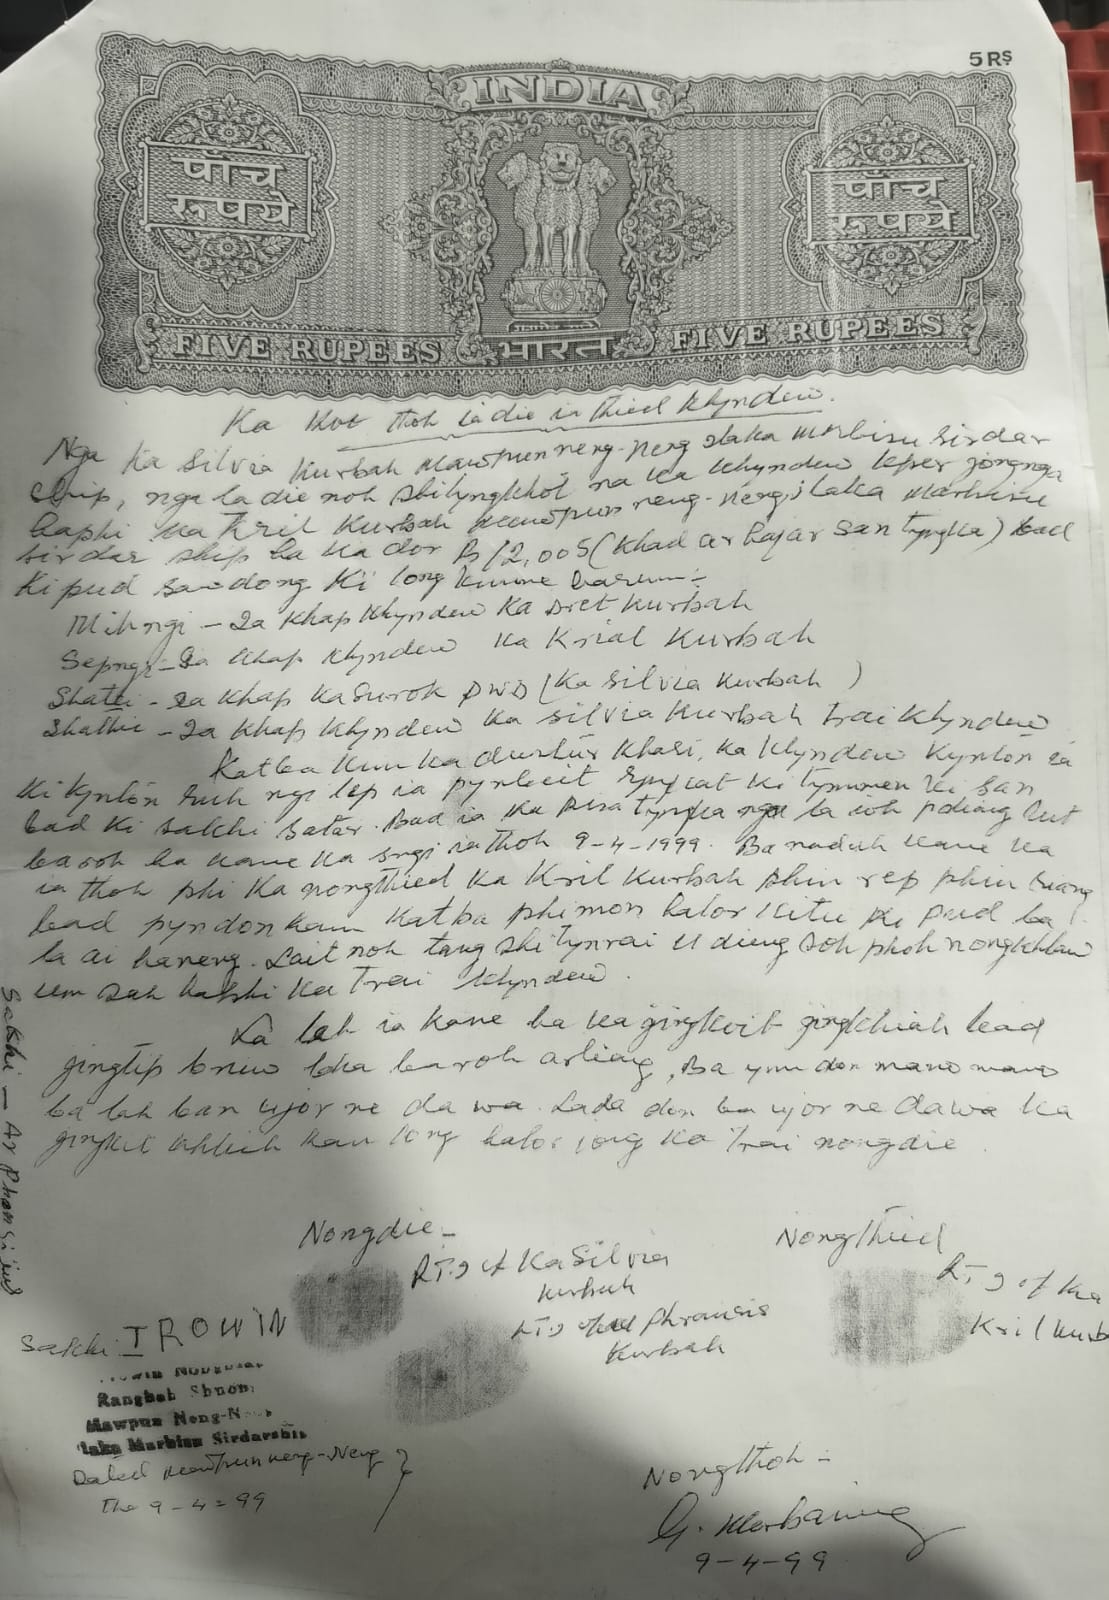 5 RS
INDIA
पांच
रूपये
पाँच
रूपये
FIVE RUPEES
भारत
FIVE RUPEES
Ka Kot thoh iadie ia thied Khyndew.
Nga Ka Silvia Kurbah Mawpun neng-neng Ilaka Marbisu Sirdar
ship, nga la die noh shilyngkhot na ka Khyndew kper jong nga
haphi Ka Kril Kurbah Mawpun neng-neng Ilaka Marbisu
Sirdar ship ha ka dor Rs 12,005 (Khad ar hajar san tyngka) bad
Ki pud sawdong Ki long kumne harum:-
Mihngi - Ia Khap Khyndew Ka Dret Kurbah
Sepngi - Ia Khap Khyndew Ka Krial Kurbah
Shatei - Ia Khap Ka Surok PWD (Ka Silvia Kurbah)
Shathie - Ia Khap Khyndew Ka Silvia Kurbah trai Khyndew
Katba Kum ka dustur Khasi, Ka Khyndew Kynton ia
Ki Kynton ruh ngi lep ia pynleit ki tymmen ki san
bad Ki sakhi satar. Bad ia Ka pisa tyngka nga la ioh pdiang lut
baroh ha kane ka sngi iathoh 9-4-1999. Ba naduh kane ka
ia thoh phi Ka nongthied Ka Kril Kurbah phin rep phin
bad pyndonkam Katba phi mon halor kitu ki pud ba
la ai haneng. Lait noh tang shi tynrai U dieng soh phoh nongkhlaw
um sah haphi Ka trai Khyndew.
La leh ia kane ha ka jingkoit jingkhiah bad
jingtip briew bha baroh arliang, Ba ynn don mano mano
ba lah ban ujor ne dawa. Lada don ba ujor ne dawa ka
jingkit khlieh kan long halor jong Ka trai nongdie.
Sakhi - Ar Phansi
Nongdie -
R.T.I of Ka Silvia
Kurbah
R.T.I of Phransis
Kurbah
Nongthied
R.T.I of Ka
Kril Kurb
Sakhi IROWIN
Rangbah Shnong
Mawpun Neng-Neng
Ilaka Marbisu Sirdarship
Dated Mawpun neng-Neng
The 9-4-99
Nongthoh -
9-4-99